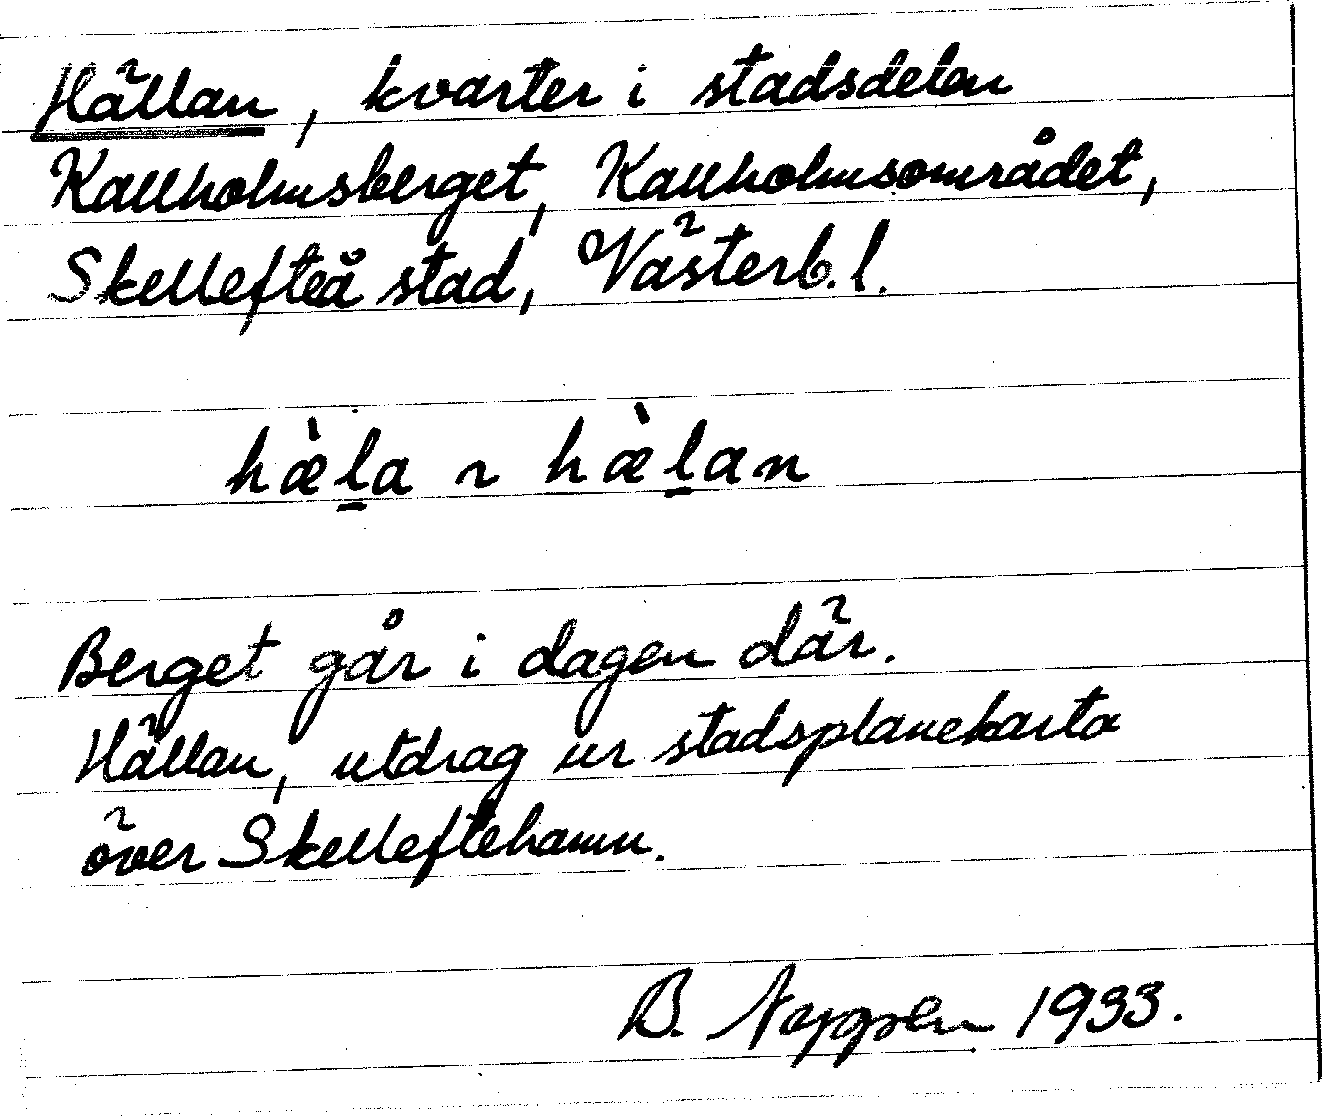 Hällan, kvarter i stadsdelen
Kallholmsberget, Kallholmsområdet,
Skellefteå stad, Västerb.l.
hæ̀l̠a ~ hæ̀l̠an
Berget går i dagen där.
Hällan, utdrag ur stadsplanekarta
över Skelleftehamn.
B. 1933.